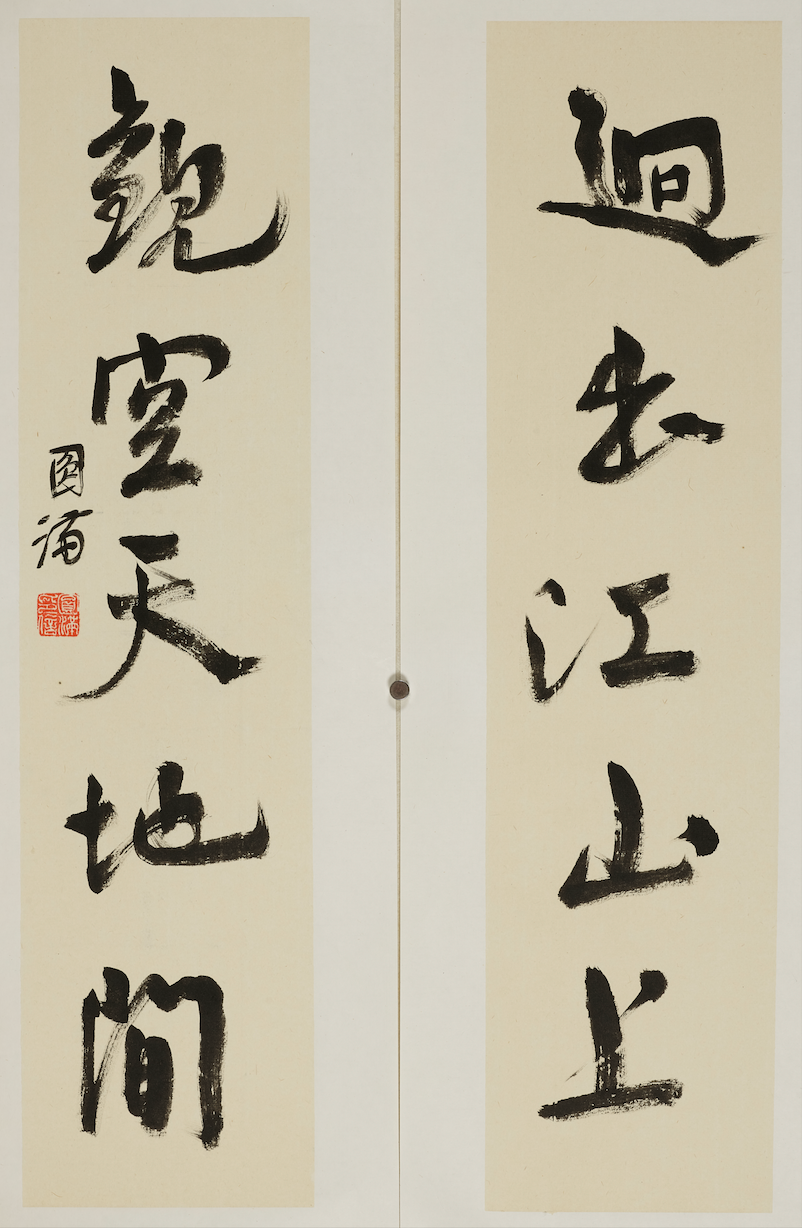 迥出江山上
觀空天地間
圓